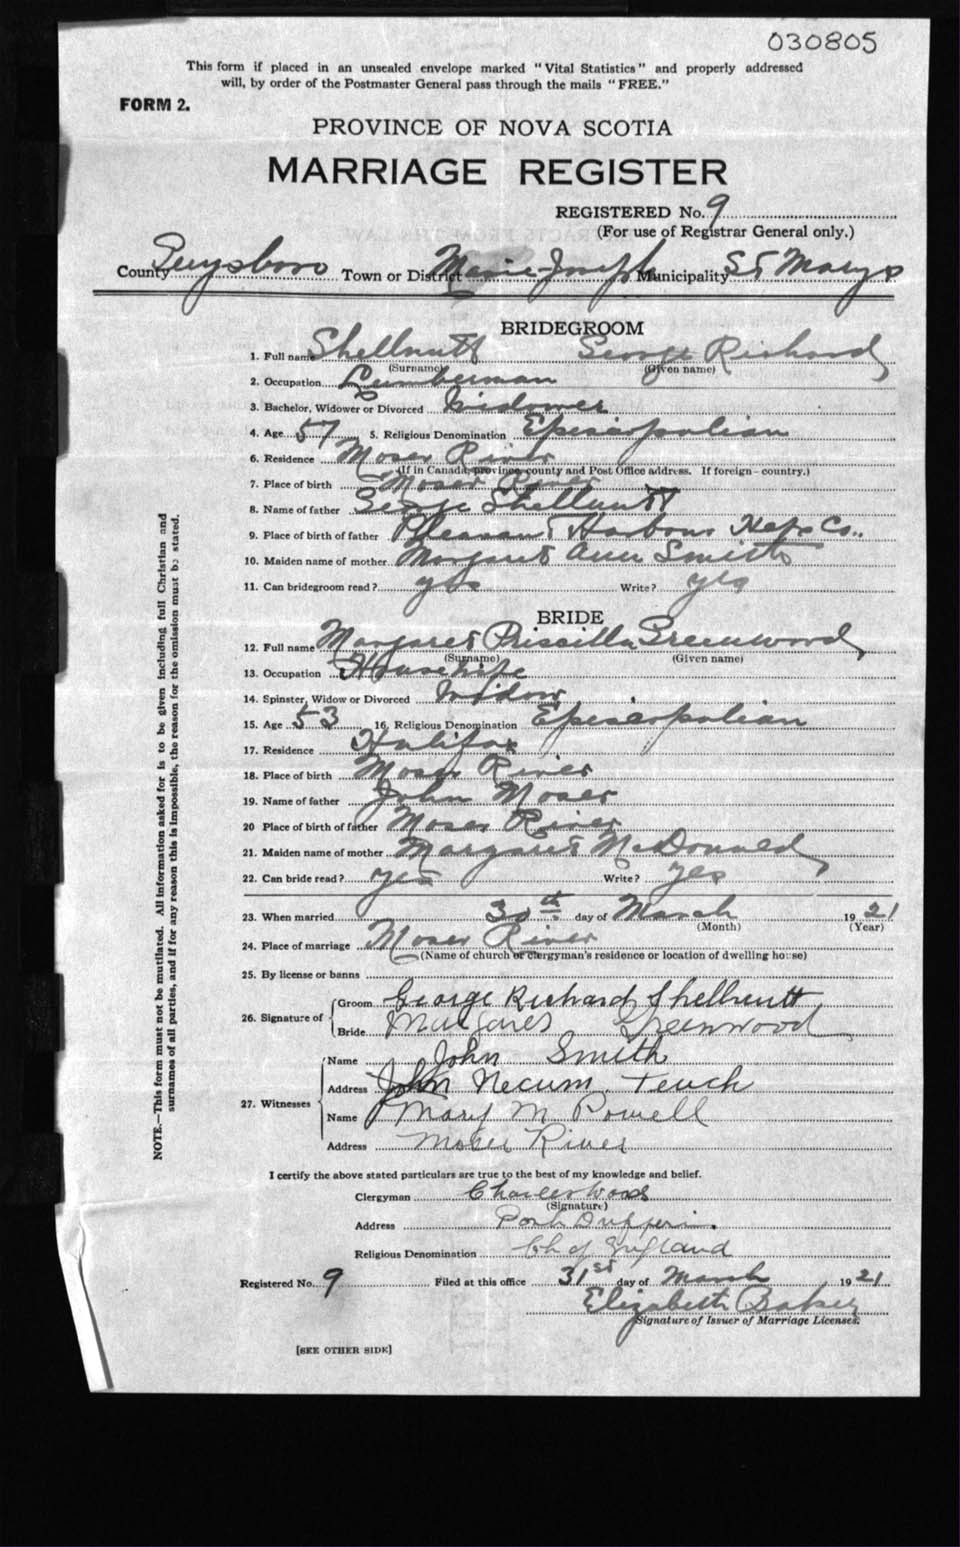 030805
This form if placed in an unsealed envelope marked "Vital Statistics" and properly addressed
will, by order of the Postmaster General pass through the mails "FREE."
FORM 2.
PROVINCE OF NOVA SCOTIA
MARRIAGE REGISTER
REGISTERED No. 9
(For use of Registrar General only.)
County Guysboro Town or District Marie Joseph Municipality St Marys
BRIDEGROOM
1. Full name Shellnutt George Richard
(Surname) (Given name)
2. Occupation Lumberman
3. Bachelor, Widower or Divorced Widower
4. Age 57 5. Religious Denomination Episcopalian
6. Residence Moser River
(If in Canada, province, county and Post Office address. If foreign - country.)
7. Place of birth Moser River
8. Name of father George Shellnutt
9. Place of birth of father Pleasant Harbour Hfx Co..
10. Maiden name of mother Margaret Ann Smith
11. Can bridegroom read? yes Write? yes
BRIDE
12. Full name Margaret Priscilla Greenwood
(Surname) (Given name)
13. Occupation Housewife
14. Spinster, Widow or Divorced Widow
15. Age 53 16. Religious Denomination Episcopalian
17. Residence Halifax
18. Place of birth Moser River
19. Name of father John Moser
20 Place of birth of father Moser River
21. Maiden name of mother Margaret McDonald
22. Can bride read? yes Write? yes
23. When married 30th day of March 1921
(Month) (Year)
24. Place of marriage Moser River
(Name of church or clergyman's residence or location of dwelling house)
25. By license or banns
26. Signature of Groom George Richard Shellnutt
Bride Margaret Greenwood
27. Witnesses Name John Smith
Address John Necum Teuch
Name Mary M Powell
Address Moser River
I certify the above stated particulars are true to the best of my knowledge and belief.
Clergyman Charles Wood
(Signature)
Address Port Dufferin.
Religious Denomination Ch of England
Registered No. 9 Filed at this office 31st day of March 1921
Elizabeth Baker
Signature of Issuer of Marriage Licenses.
[SEE OTHER SIDE]
NOTE.—This form must not be mutilated. All information asked for is to be given including full Christian and
surnames of all parties, and if for any reason this is impossible, the reason for the omission must be stated.